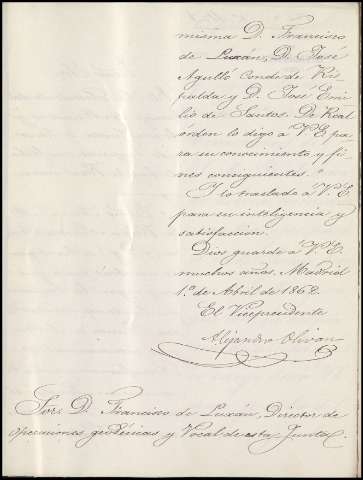 misma D. Francisco
de Luxán, D. José
Agulló Conde de Ri-
palda y D. José Emi-
lio de Santos. De Real
órden lo digo á V.E. pa-
ra su conocimiento y fi-
nes consiguientes."
Y lo traslado á V.E.
para su inteligencia y
satisfaccion.
Dios guarde á V.E.
muchos años. Madrid
1.º de Abril de 1862.
El Vicepresidente
Alejandro Olivan
Sor. D. Francisco de Luxán, Director de
operaciones geodésicas y Vocal de esta Junta.